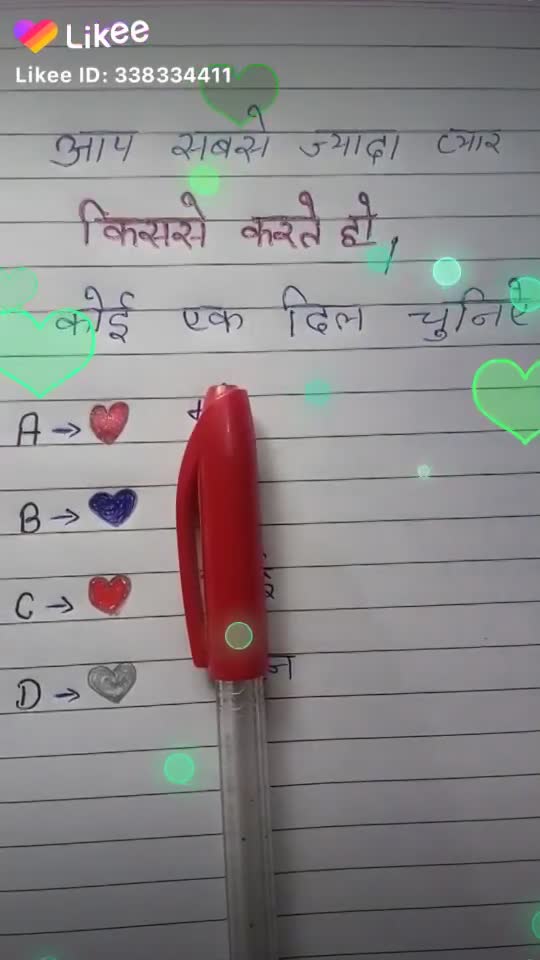 Likee
Likee ID: 338334411
आप सबसे ज्यादा प्यार
किससे करते हो,
कोई एक दिल चुनिऐ
A →
B →
C →
D →